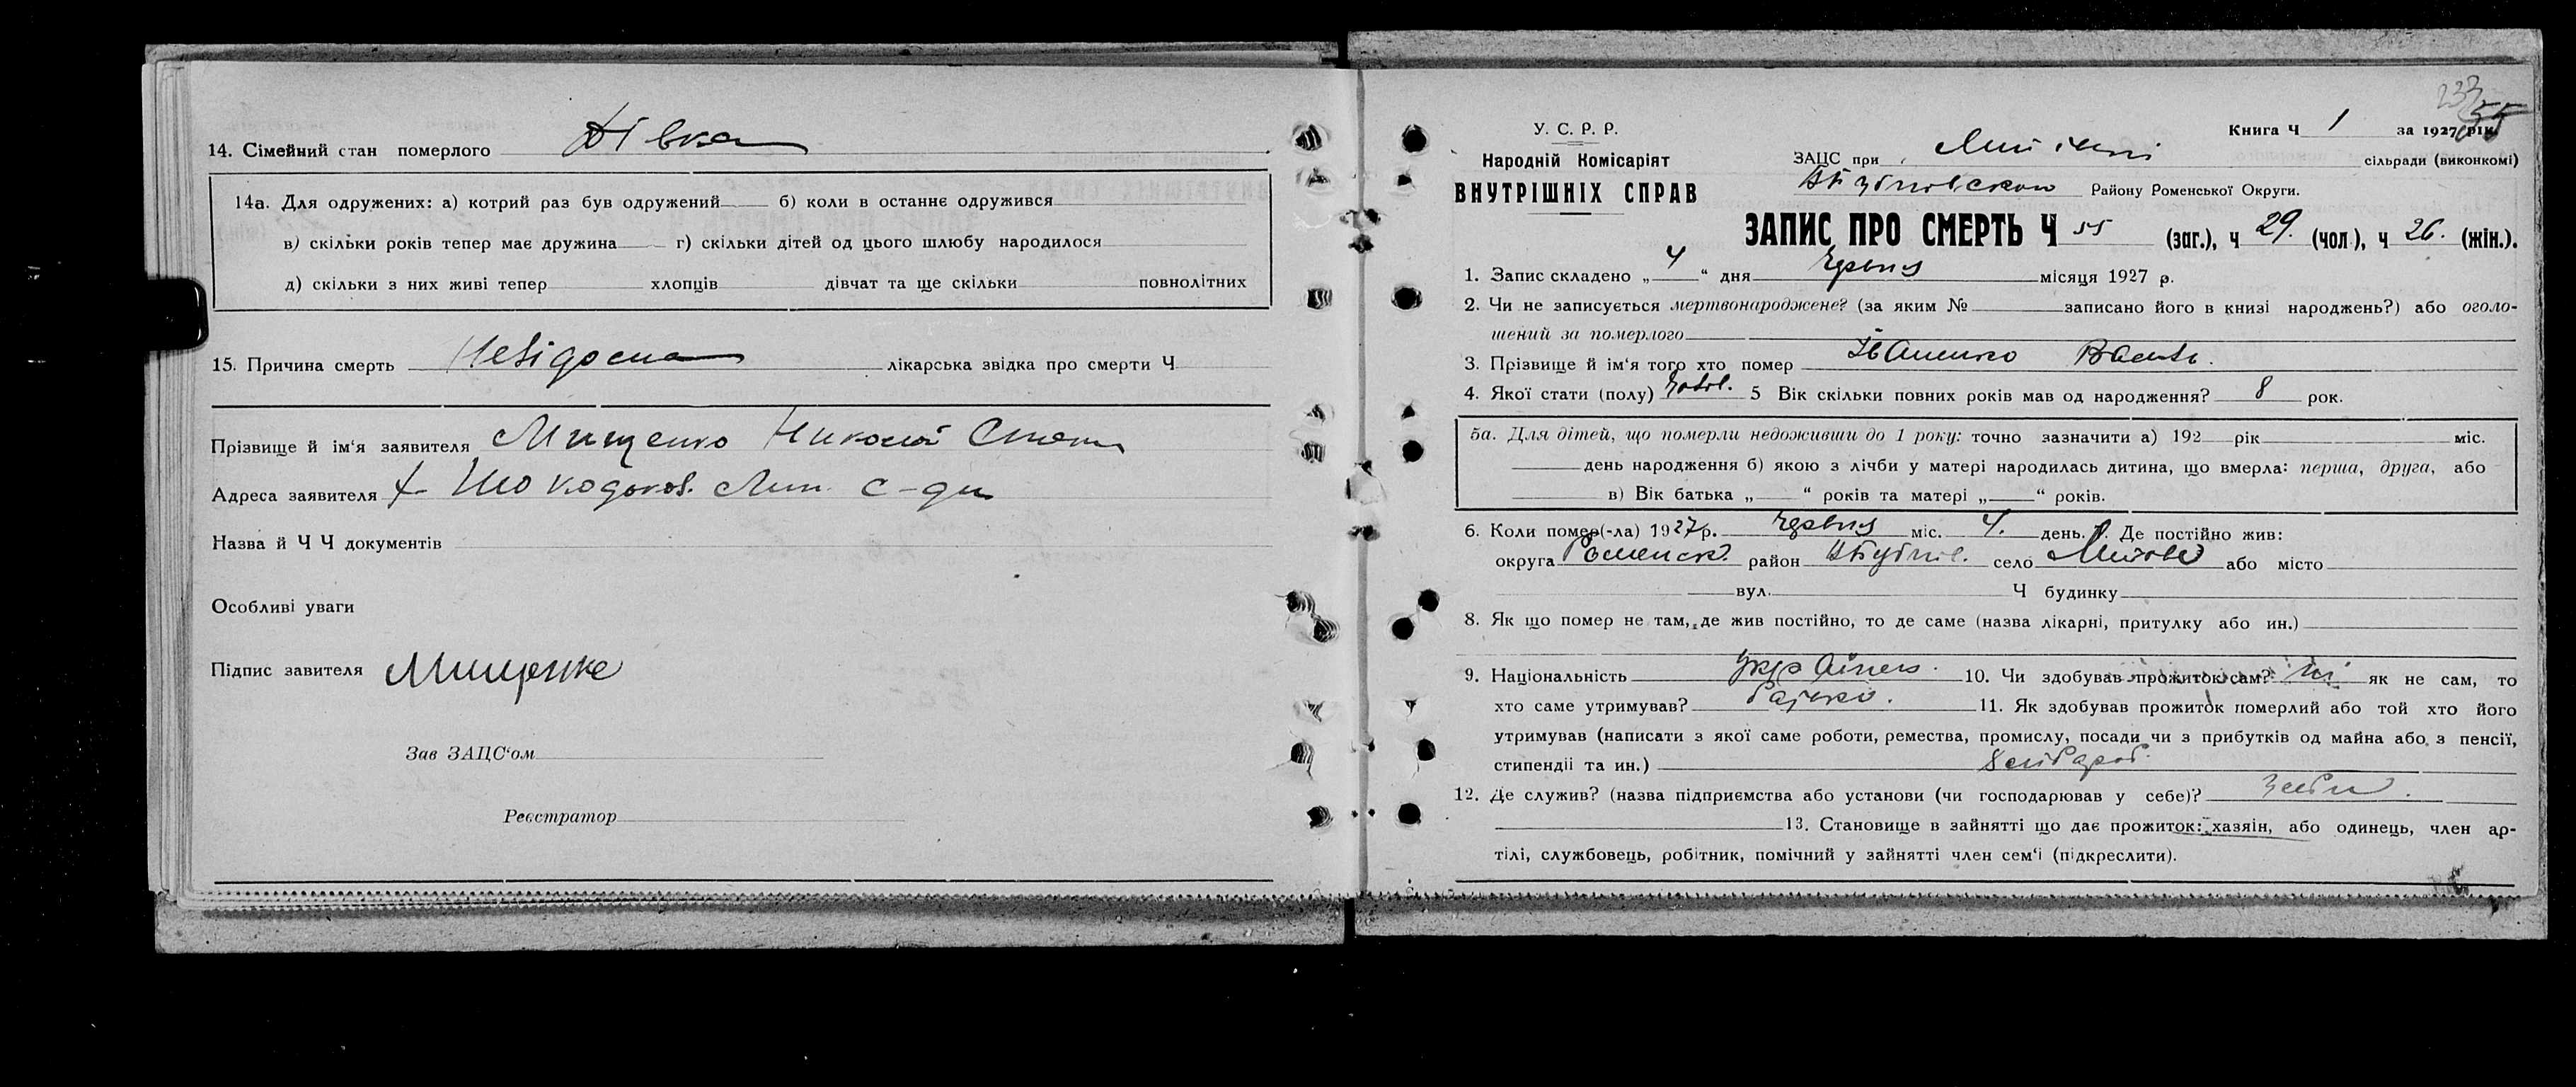 14. Сімейний стан померлого Дівка
14а. Для одружених: а) котрий раз був одружений б) коли в останнє одружився
в) скільки років тепер має дружина г) скільки дітей од цього шлюбу народилося
д) скільки з них живі тепер хлопців дівчат та ще скільки повнолітних
15. Причина смерть Невідома лікарська звідка про смерти Ч
Прізвище й ім'я заявителя Мищенко Николай Степ
Адреса заявителя х. с-ди
Назва й Ч Ч документів
Особливі уваги
Підпис завителя Мищенко
Зав ЗАЦС'ом
Реєстратор
233
55
У. С. Р. Р.
Народній Комісаріят
ВНУТРІШНІХ СПРАВ
Книга Ч 1 за 1927 рік
ЗАЦС при сільради (виконкомі)
Району Роменської Округи.
ЗАПИС ПРО СМЕРТЬ Ч 55 (заг.), ч 29. (чол.), ч 26. (жін.).
1. Запис складено „4“ дня червня місяця 1927 р.
2. Чи не записується мертвонароджене? (за яким № записано його в книзі народжень?) або оголо-
шений за померлого
3. Прізвище й ім'я того хто помер Іваненко Василь.
4. Якої стати (полу) чолов. 5 Вік скільки повних років мав од народження? 8 рок.
5а. Для дітей, що померли недоживши до 1 року: точно зазначити а) 192 рік міс.
день народження б) якою з лічби у матері народилась дитина, що вмерла: перша, друга, або
в) Вік батька „ “ років та матері „ “ років.
6. Коли помер(-ла) 1927р. червня міс. 4. день. 7. Де постійно жив:
округа Роменск. район село або місто
вул. Ч будинку
8. Як що помер не там, де жив постійно, то де саме (назва лікарні, притулку або ин.)
9. Національність Українець. 10. Чи здобував прожиток сам? ні як не сам, то
хто саме утримував? Батько. 11. Як здобував прожиток померлий або той хто його
утримував (написати з якої саме роботи, ремества, промислу, посади чи з прибутків од майна або з пенсії,
стипендії та ин.) Хлібороб.
12. Де служив? (назва підприємства або установи (чи господарював у себе)?
13. Становище в зайнятті що дає прожиток: хазяін, або одинець, член ар-
тілі, службовець, робітник, помічний у зайнятті член сем'ї (підкреслити).